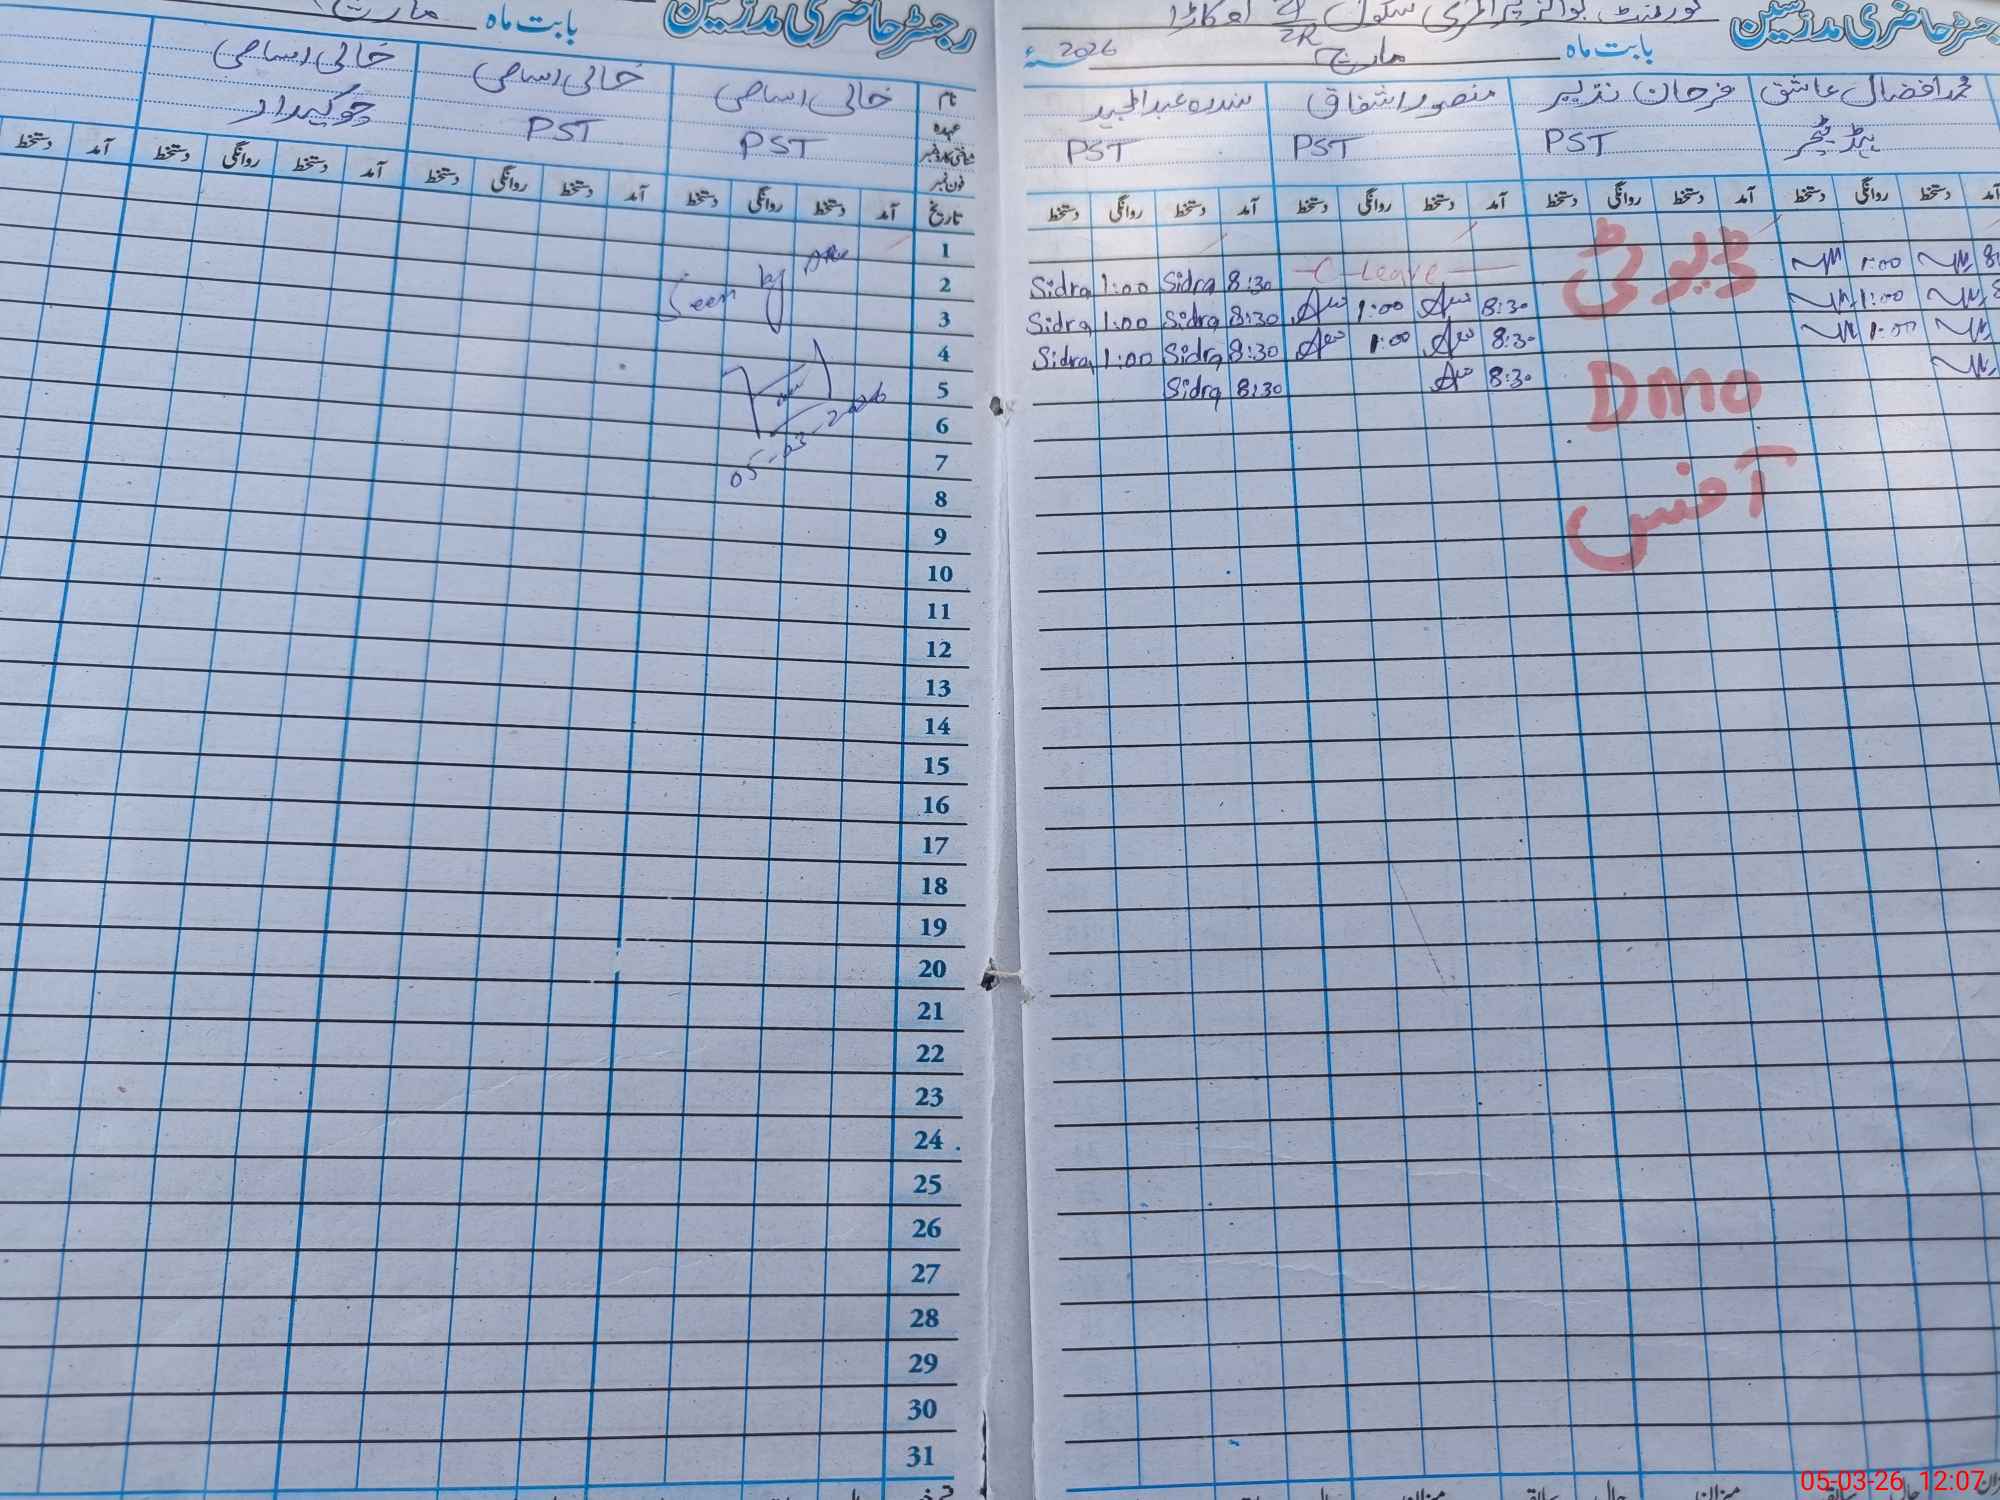 رجسٹر حاضری مدرسین
گورنمنٹ بوائز پرائمری سکول 21/2R اوکاڑا
بابت ماہ مارچ 2026ء
محمد افضال عاشق فرحان نذیر منصور اشفاق سدرہ عبدالمجید
ہیڈ ٹیچر PST PST PST
آمد دستخط روانگی دستخط آمد دستخط روانگی دستخط آمد دستخط روانگی دستخط آمد دستخط روانگی دستخط
1:00 C Leave 8:30 Sidra 1:00 Sidra
1:00 8:30 1:00 8:30 Sidra 1:00 Sidra
1:00 8:30 1:00 8:30 Sidra 1:00 Sidra
8:30 8:30 Sidra
ڈیوٹی
DMO
آفس
رجسٹر حاضری مدرسین
بابت ماہ مارچ
نام خالی اسامی خالی اسامی خالی اسامی
عہدہ PST PST چوکیدار
شناختی کارڈ نمبر
فون نمبر
تاریخ آمد دستخط روانگی دستخط آمد دستخط روانگی دستخط آمد دستخط روانگی دستخط آمد دستخط
1
2
3
4
5
6
7
8
9
10
11
12
13
14
15
16
17
18
19
20
21
22
23
24
25
26
27
28
29
30
31
Seen by
05-03-2026
05-03-26 12:07